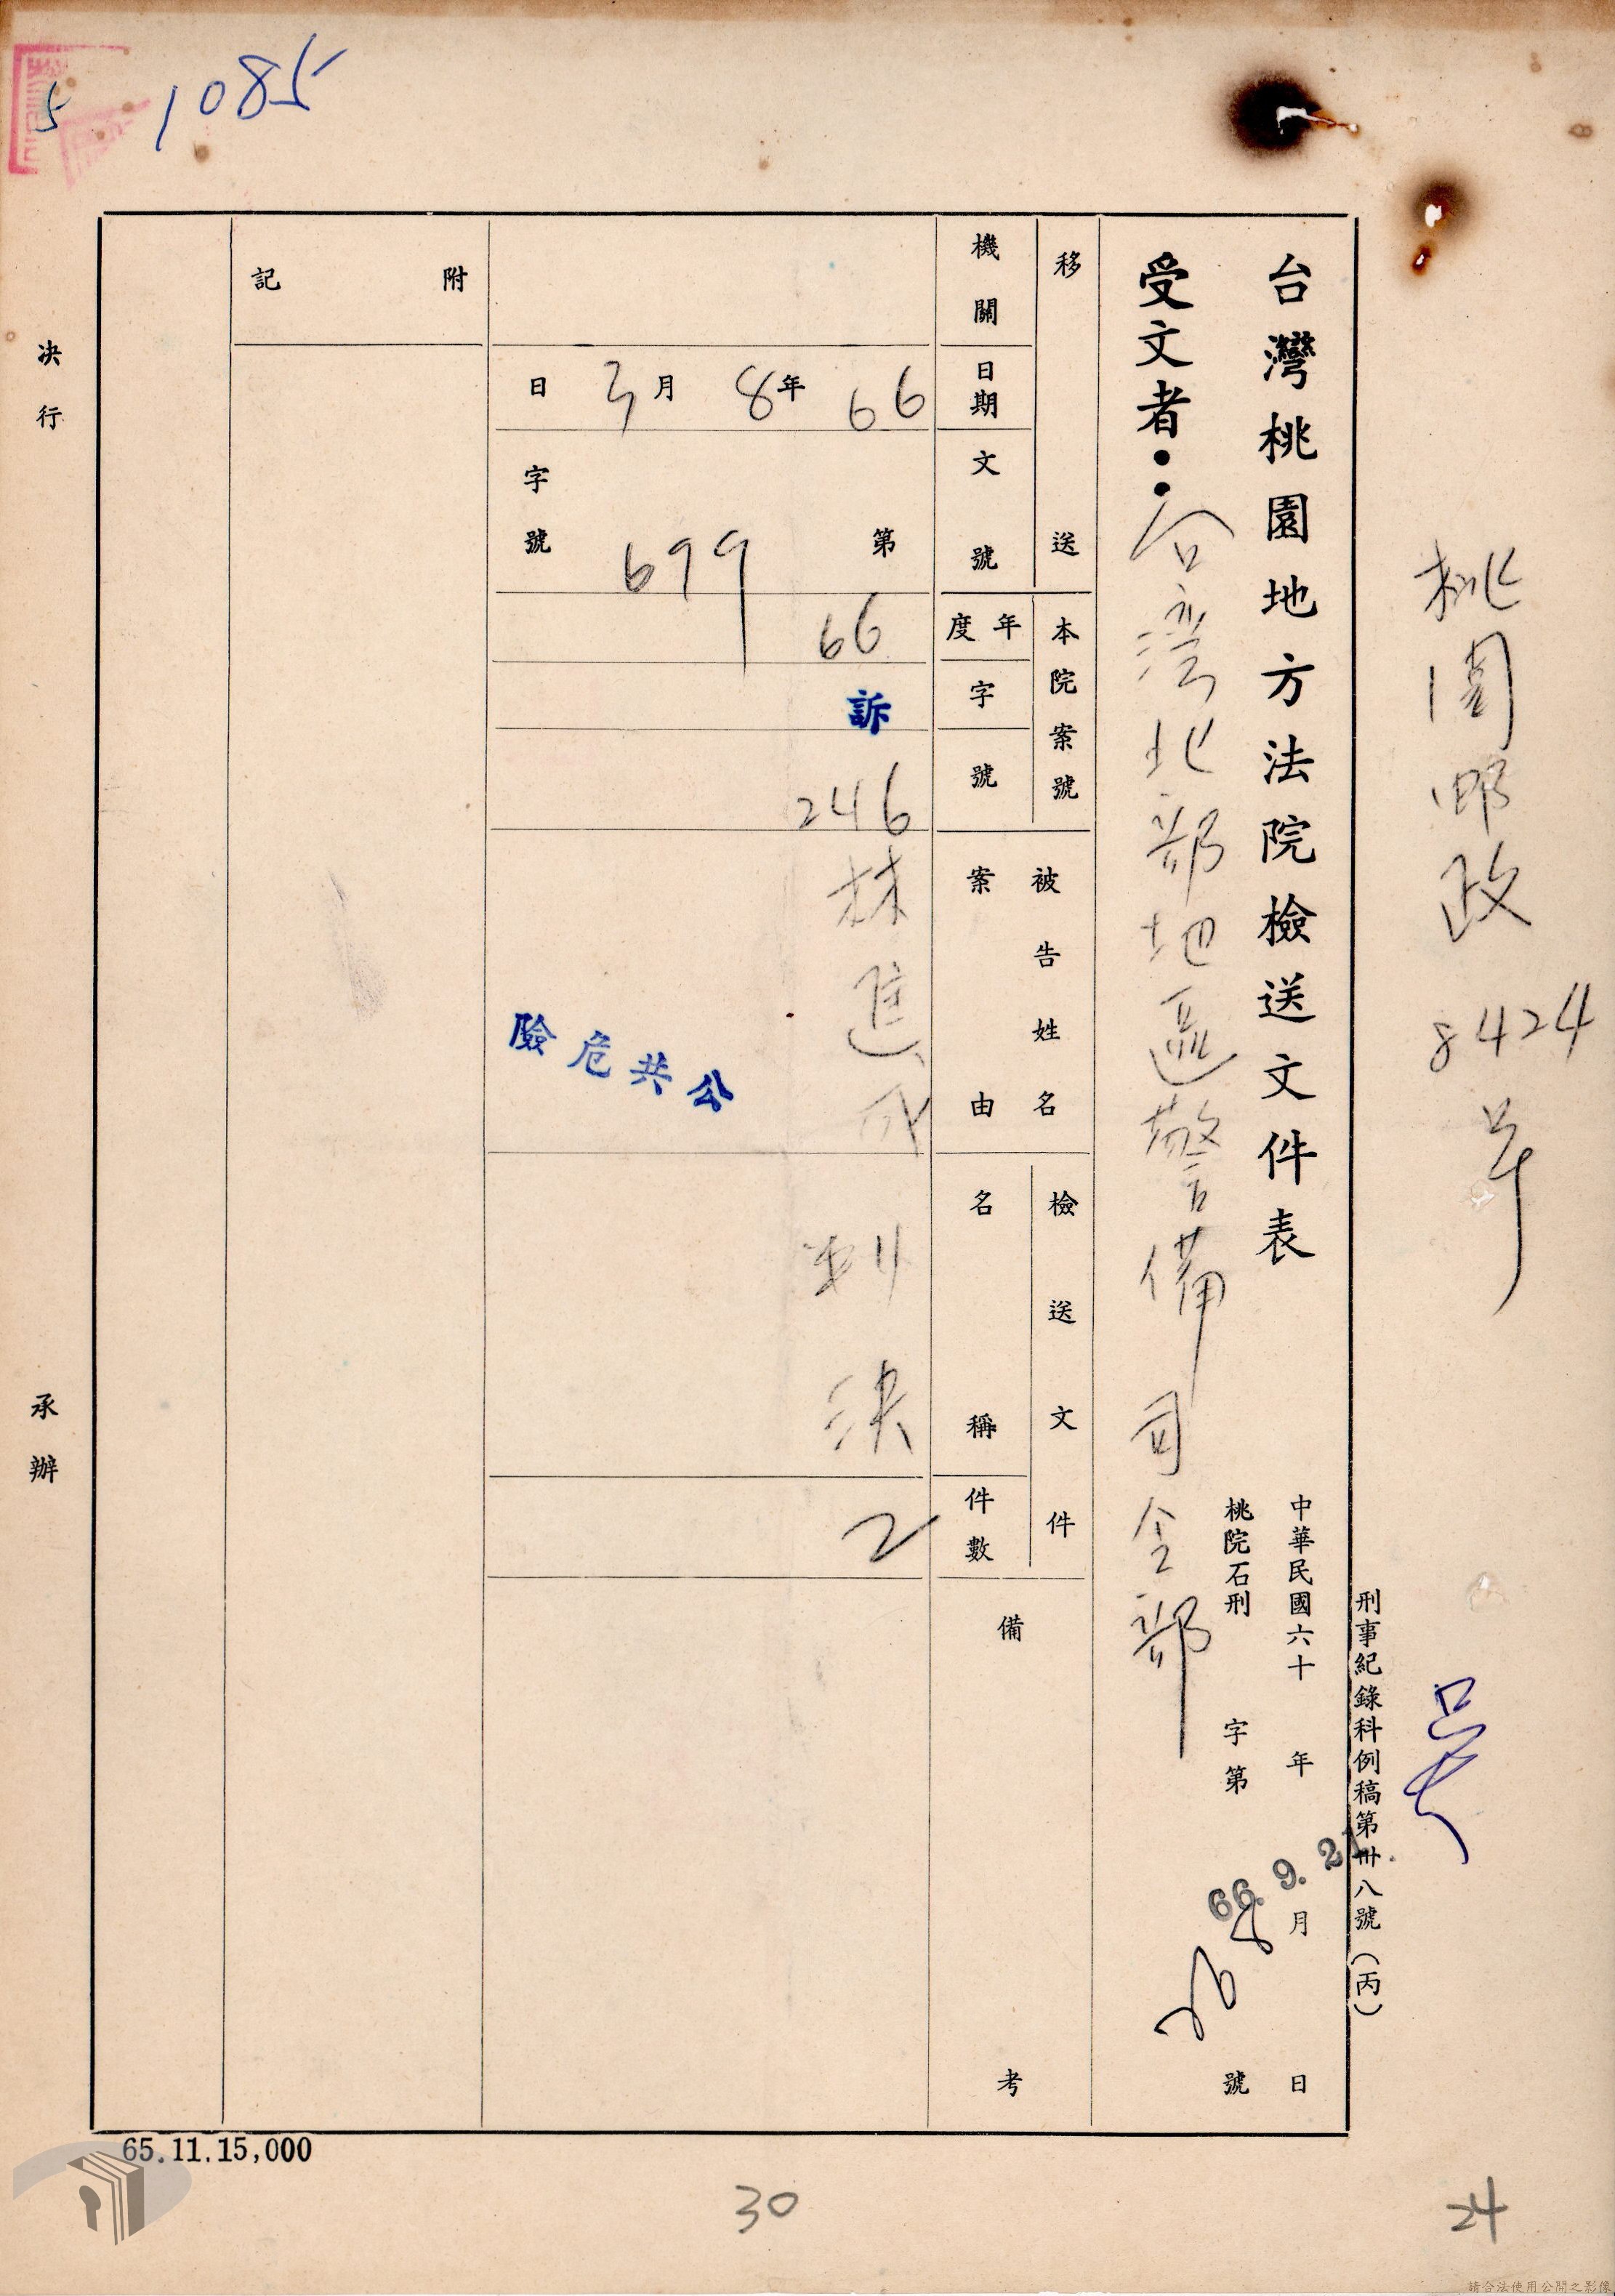 5
1085
桃園郵政
8424
刑事紀錄科例稿第卅八號（丙）
台灣桃園地方法院檢送文件表
中華民國六十 年 月 日
66.9.21
桃院石刑 字第 號
受文者：台灣北部地區警備司令部
移送
機關
日期
文號
本院案號
年度
字
號
被告姓名
案由
檢送文件
名稱
件數
備考
66年8月3日
第699字號
66
訴
246
林進成
公共危險
判決
2
附記
決行
承辦
65.11.15,000
30
24
請合法使用公開之影像